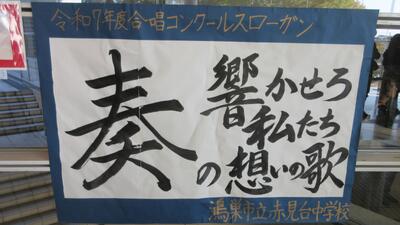 令和7年度合唱コンクールスローガン
奏
響かせろ
私たち
の想いの歌
鴻巣市立赤見台中学校